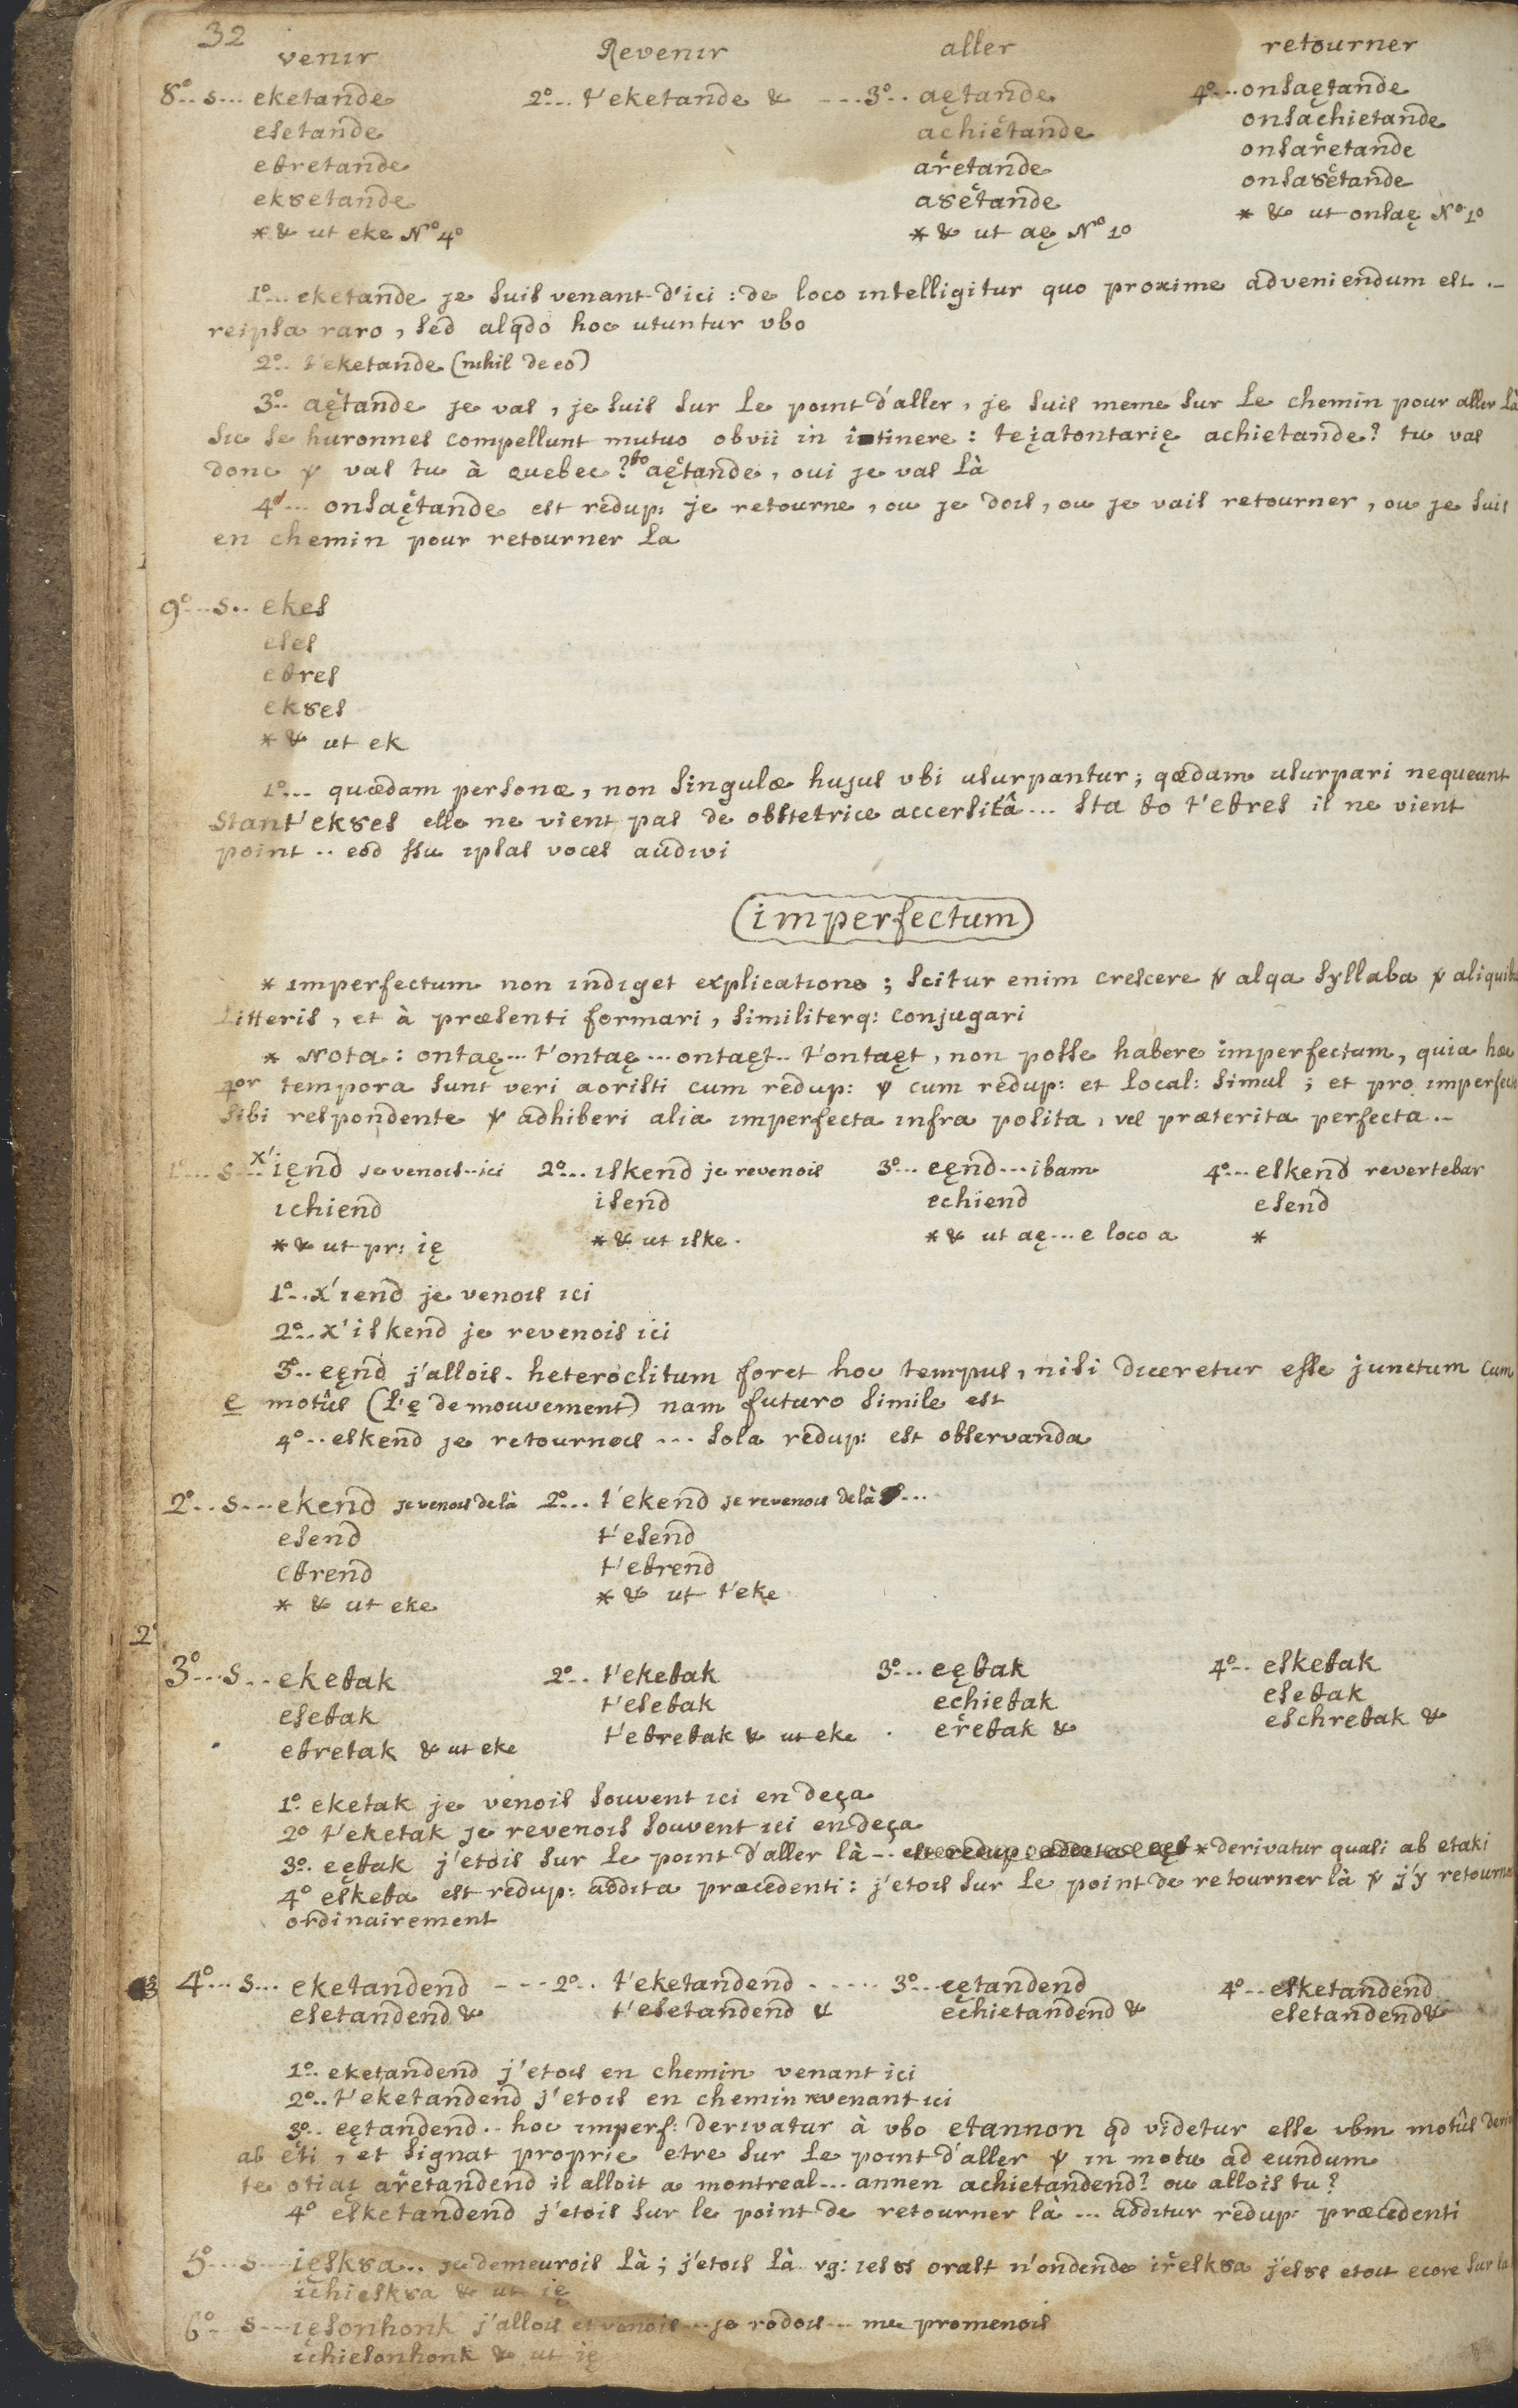 32
venir Revenir aller retourner
8°.. s... eketande 2°... t'eketande & ---- 3°.. aętande 4°... onsaętande
esetande achietande onsachietande
eθretande aretande onsaretande
ekȣetande aȣetande onsaȣetande
* & ut eke N° 4° * & ut aę N° 1° * & ut onsaę N° 1°
1°... eketande je suis venant d'ici : de loco intelligitur quo proxime adveniendum est .-
reipsa raro, sed alqdo hoc utuntur vbo
2°.. t'eketande (nihil de eo)
3°.. aętande je vas, je suis sur le point d'aller, je suis meme sur le chemin pour aller là
sic se huronnes compellunt mutuo obvii in itinere : teįatontarię achietande? tu vas
donc ѱ vas tu à quebec? θo aętande, oui je vas là
4°... onsaętande est redup: je retourne, ou je dois, ou je vais retourner, ou je suis
en chemin pour retourner la
9°... s.. ekes
eses
eθres
ekȣes
* & ut ek
1°... quædam personæ, non singulæ hujus vbi usurpantur; qædam usurpari nequeunt
stan t'ekȣes elle ne vient pas de obstetrice accersitâ... sta θo t'eθres il ne vient
point .. eod ssu ipsas voces audivi
imperfectum
* imperfectum non indiget explicatione ; scitur enim crescere ѱ alqa syllaba ѱ aliquibus
litteris, et à præsenti formari, similiterq: conjugari
* Nota : ontaę... t'ontaę... ontaęt.. t'ontaęt, non posse habere imperfectum, quia hæc
4or tempora sunt veri aoristi cum redup: ѱ cum redup: et local: simul ; et pro imperfecto
sibi respondente ѱ adhiberi alia imperfecta infra posita, vel præterita perfecta .-
1°... s... x'ięnd je venois..ici 2°... iskend je revenois 3°... eęnd... ibam 4°... eskend revertebar
ichiend isend echiend esend
* & ut pr: ię * & ut iske. * & ut aę... e loco a *
1°.. x'iend je venois ici
2°.. x'iskend je revenois ici
3°.. eęnd j'allois. heteroclitum foret hoc tempus, nisi diceretur esse junctum cum
e motûs (l'e de mouvement) nam futuro simile est
4°.. eskend je retournois ... sola redup: est observanda
2°.. s... ekend je venois de là 2°... t'ekend je revenois de là ...
esend t'esend
eθrend t'eθrend
* & ut eke * & ut t'eke
2°
3°... s... ekeθak 2°.. t'ekeθak 3°... eęθak 4°.. eskeθak
eseθak t'eseθak echieθak eseθak
eθretak & ut eke t'eθreθak & ut eke . ereθak & eschreθak &
1° eketak je venois souvent ici en deça
2° t'eketak je revenois souvent ici en deça
3°. eęθak j'etois sur le point d'aller là -. * derivatur quasi ab etaki
4° eskeθa est redup: addita præcedenti : j'etois sur le point de retourner là ѱ j'y retournois
ordinairement
4°... s... eketandend - - - 2°.. t'eketandend - - - - 3°... eętandend 4°.. esketandend
esetandend & t'esetandend & echietandend & esetandend &
1°. eketandend j'etois en chemin venant ici
2°.. t'eketandend j'etois en chemin revenant ici
3°.. eętandend.. hoc imperf: derivatur à vbo etannon qd videtur esse vbm motûs
ab eti, et signat proprie etre sur le point d'aller ѱ in motu ad eundum
te otiaį aretandend il alloit a montreal... annen achietandend? ou allois tu?
4° esketandend j'etois sur le point de retourner là ... additur redup: præcedenti
5°... s... ięskȣa... je demeurois là ; j'etois là vg: iesȣs orast n'ondende ireskȣa jesȣs etoit ecore sur la
ichieskȣa & ut ię
6°.. s... ięsonhonk j'allois et venois... je rodois... me promenois
ichiesonhonk & ut ię